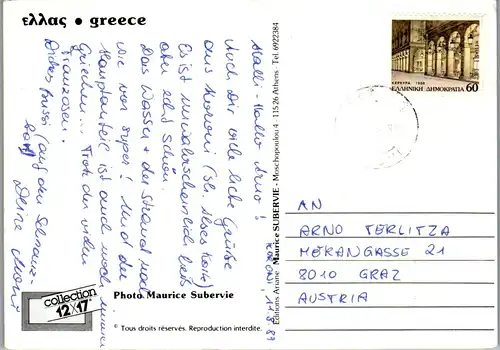 ελλας • greece
Halli Hallo Arno!
Auch Dir viele liebe Grüße
aus Koroni (sh. Karte)
Es ist unwahrscheinlich
aber echt schön.
Das Wasser + der Strand
wie super! Und der
Hauptanteil ist auch noch immer
Griechen... Trotz der vielen
Franzosen.
Dickes Bussi (auf den
Deine
KORONI,
collection
12X17
Photo Maurice Subervie
© Tous droits réservés. Reproduction interdite.
Editions Ariane Maurice SUBERVIE - Moschopoulou 4 - 115 26 Athens - Tel. 6922384
ΚΕΡΚΥΡΑ 1988
ΕΛΛΗΝΙΚΗ ΔΗΜΟΚΡΑΤΙΑ 60
AN
ARNO TERLITZA
MERANGASSE 21
8010 GRAZ
AUSTRIA